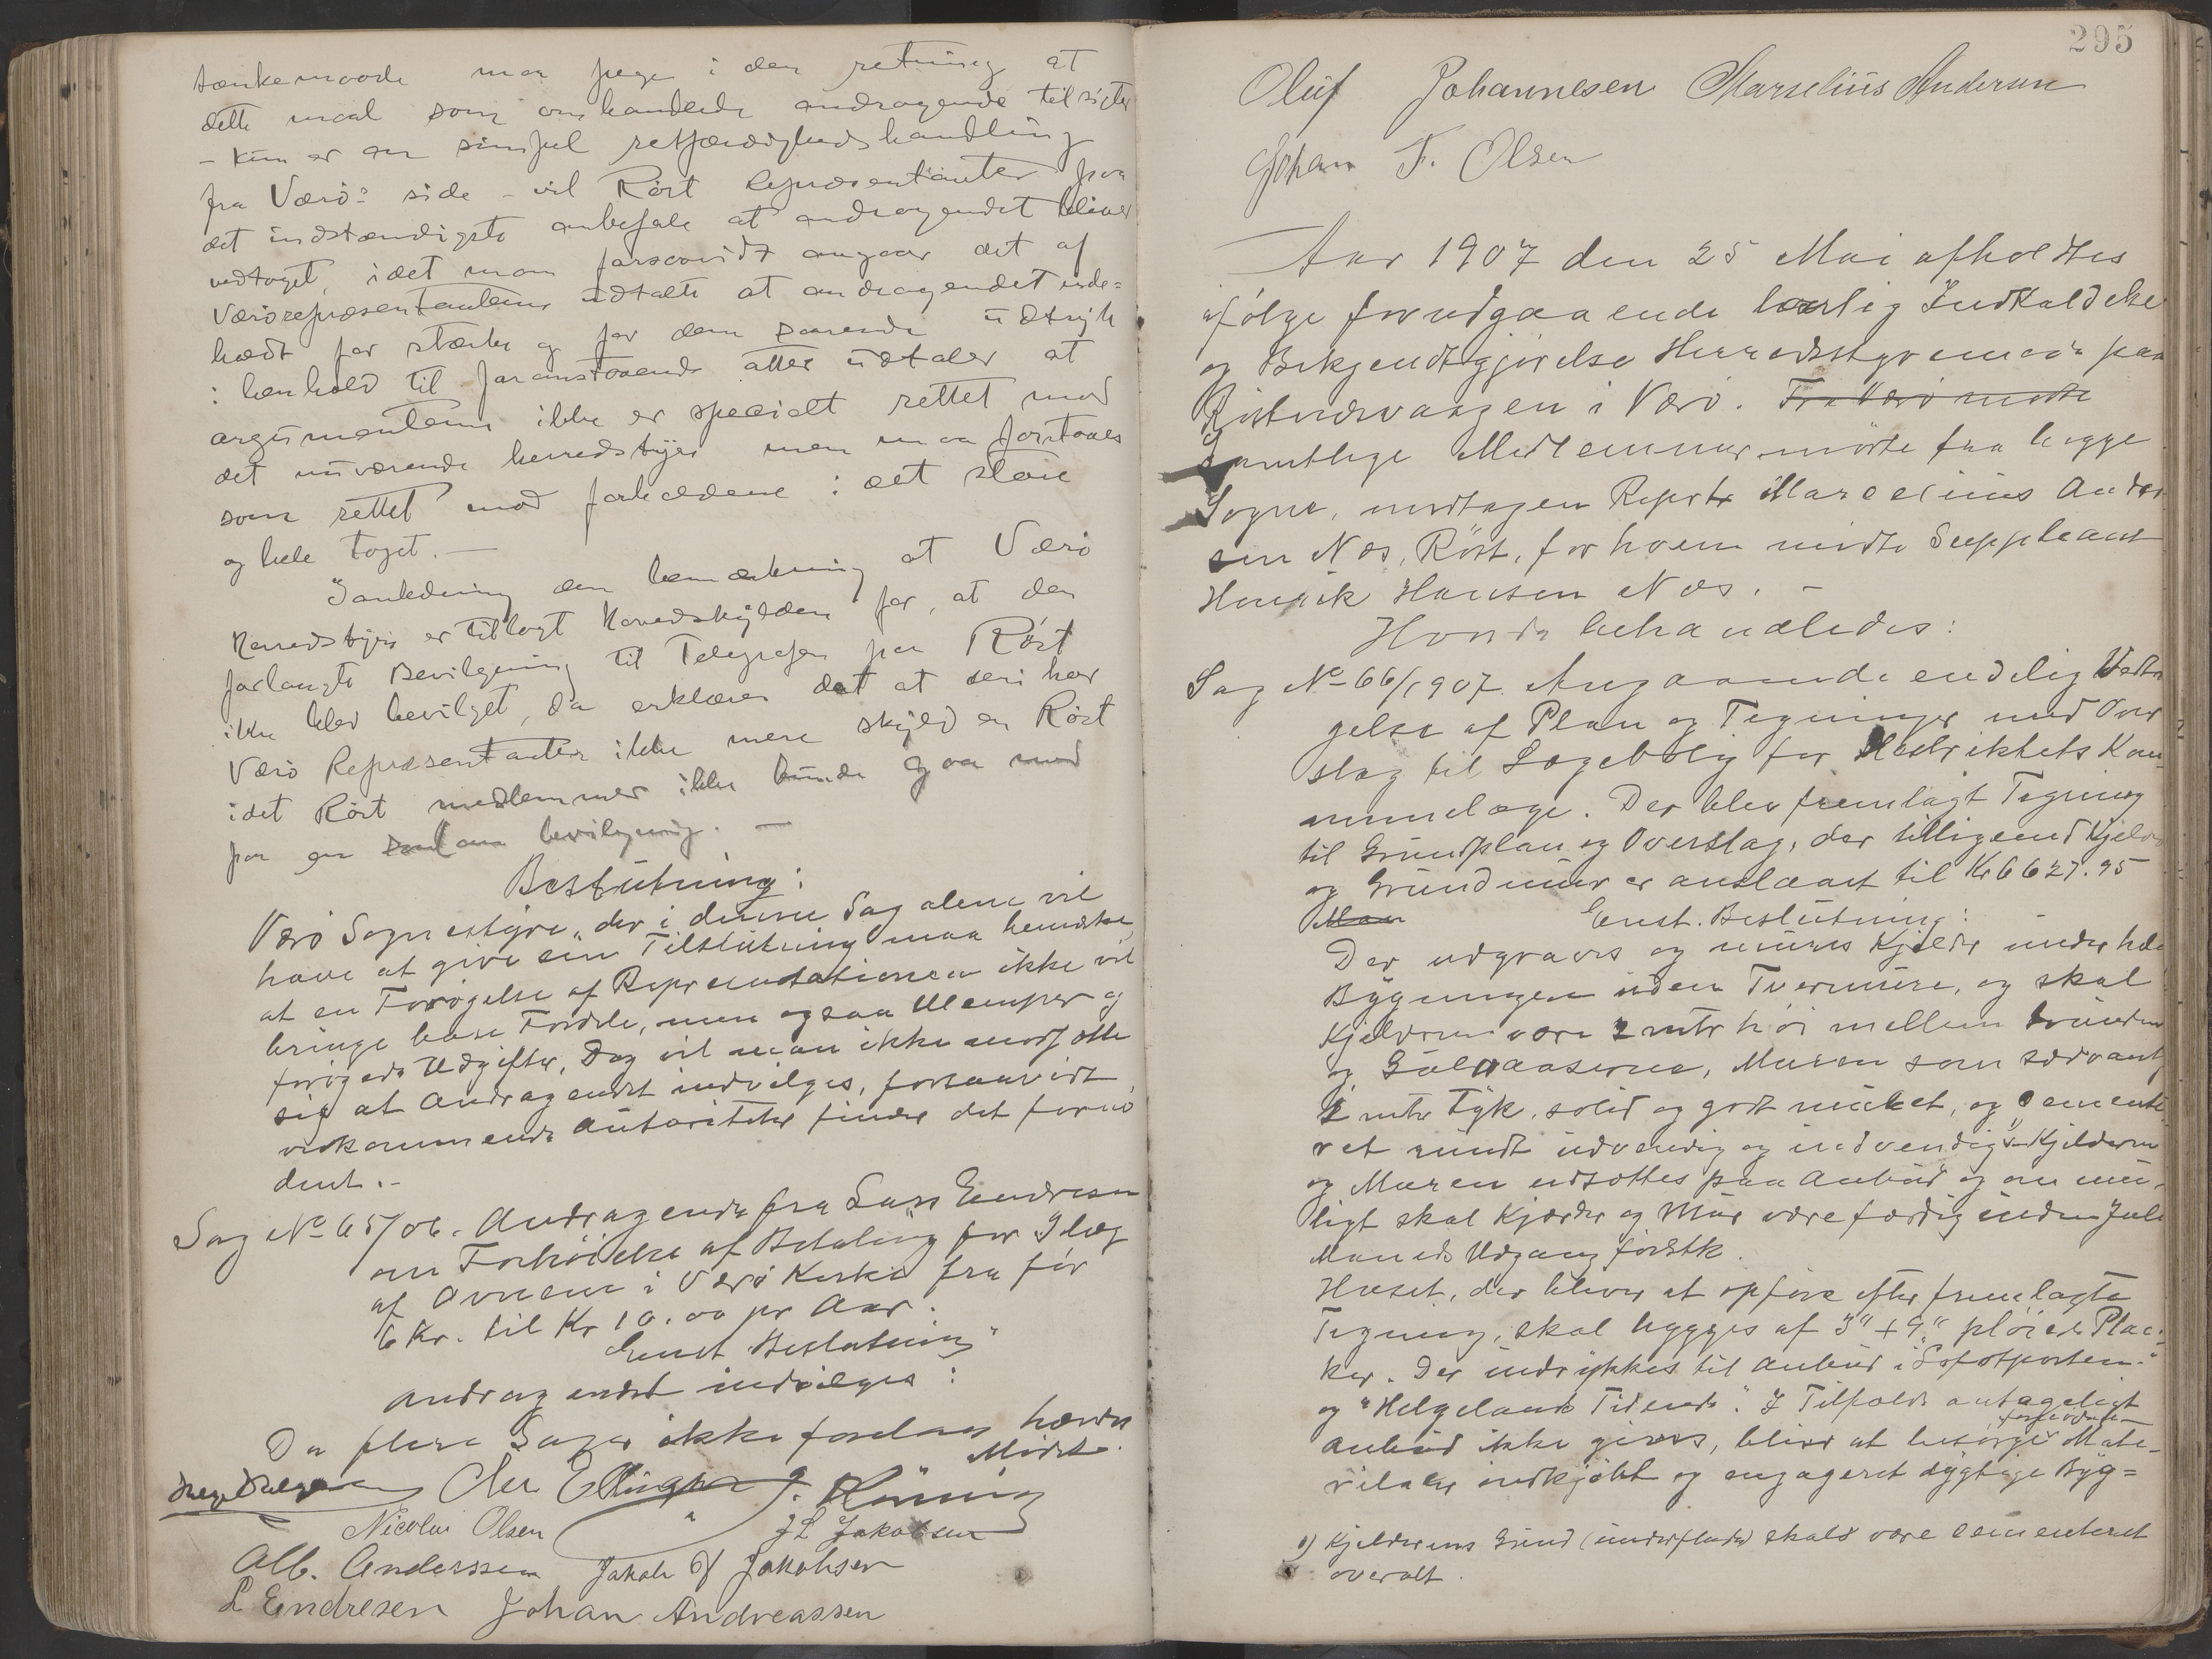 tankemaade man pege i den retning at
dette maal som omhandlede andragende tilsigter
– kun er en simpel retfærdighedshandling
fra Værö's side – vil Röst Repræsentanter paa
det indstændigste anbefale at andragendet bliver
vedtaget, idet man forsaavidt angaar det af
Værörepræsentanterne udtalte at andragendet inde=
holdt for stærke og for dem saarende udtryk
i henhold til foranstaaende atter udtaler at
argumenterne ikke er specielt rettet mod
det nuværende herredstyre men maa forstaaes
som rettet mod forholdene i det store
og hele taget. –
I anledning den bemærkning at Værö
Herredstyre er tillagt Hovedskylden for, at den
forlangte Bevilgning til Telegrafen paa Röst
ikke blev bevilget, da erklærer det at deri har
Værö Repræsentanter ikke mere skyld en Röst
idet Röst medlemmer ikke kunde gaa med
paa en saadan bevilgning. –
Beslutning:
Værö Sognestyre, der i denne Sag alene vil
have at give sin Tilslutning maa bemærke,
at en Forögelse af Repræsentationen ikke vil
bringe bare Fordele, men ogsaa Ulemper og
forögede Udgifter, Dog vil man ikke modsætte
sig at Andragendet indvilges, forsaavidt
vedkommende Autoriteter finder det fornö
dent. –
Sag No 65/06. Andragende fra Lars Eendresen
om Forhöielse af Betaling for Ilæg
af Ovnene i Værö Kirke fra för
6 Kr. til Kr 10.00 pr Aar.
Enst Beslutning
Andragendet indvilges:
Da flere Sager ikke forelaa hævdes
Mödet.
Ellingsen J. Köning
Nicolai Olsen J L Jakobsen
Alb. Anderssen Jakob Jakobsen
L Eindresen Johan Andreassen
295
Oluf Johannesen Marselius Andersen
Johan F. Olsen
Aar 1907 den 25 Mai afholdtes
ifölge forudgaaende lovlig Indkaldelse
og Bekjendtgjörelse Herredsstyremöde paa
Röstnesvaagen i Værö. Fra Værö mödte
Samtlige Medlemmer mödte fra begge
Sogne, undtagen Reprtr Marselius Ander
sen Næs, Röst, for hvem mödte Suppleant
Henrik Hansen Næs. –
Hvorda behandledes:
Sag No 66/1907. Angaaende endelig Vedta
gelse af Plan og Tegninger med Over
slag til Lægebolig for Distriktets Kom
munelæge. Der blev fremlagt Tegning
til Grundplan og Overslag, der tilligemed Kjelder
og Grundmur er anslaaet til Kr 6627.95
Man Enst. Beslutning:
Der udgraves og mures Kjelder under hele
Bygningen uden Tvermure, og skal
Kjelderen være 2 mtr höi mellem Grunden
og Gulvaaserne, Muren som sædvanlig
1/2 mtr tyk, solid og godt muret, og sementé
ret rundt udvendig og indvendig 1) Kjelderen
og Muren udsættes paa Anbud og om mu-
ligt skal Kjelder og Mur være færdig inden Juli
Maaneds Udgang förstk.
Huset, der bliver at opföre efter fremlagte
Tegning, skal bygges af 3" + 9" plöiede Plan-
ker. Der indrykkes til Anbud i "Lofotposten"
og "Helgelands Tidende". I Tilfælde antageligt
Anbud ikke gives, bliver at besörge fornödne Mate-
rialer indkjöbt og engageret dygtige Byg=
1) Kjelderens Grund (underfladen) skal være sementeret
overalt.